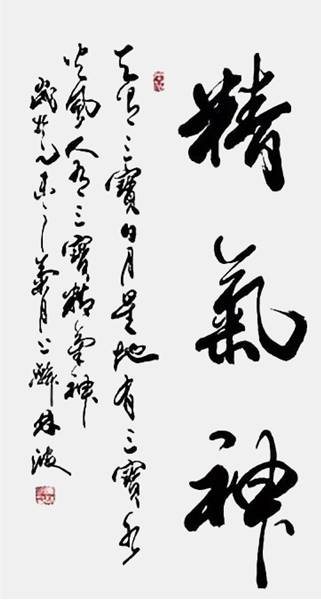 精氣神
天有三寶日月星地有三寶水
火風人有三寶精氣神
歲於乙未之月上澣林波